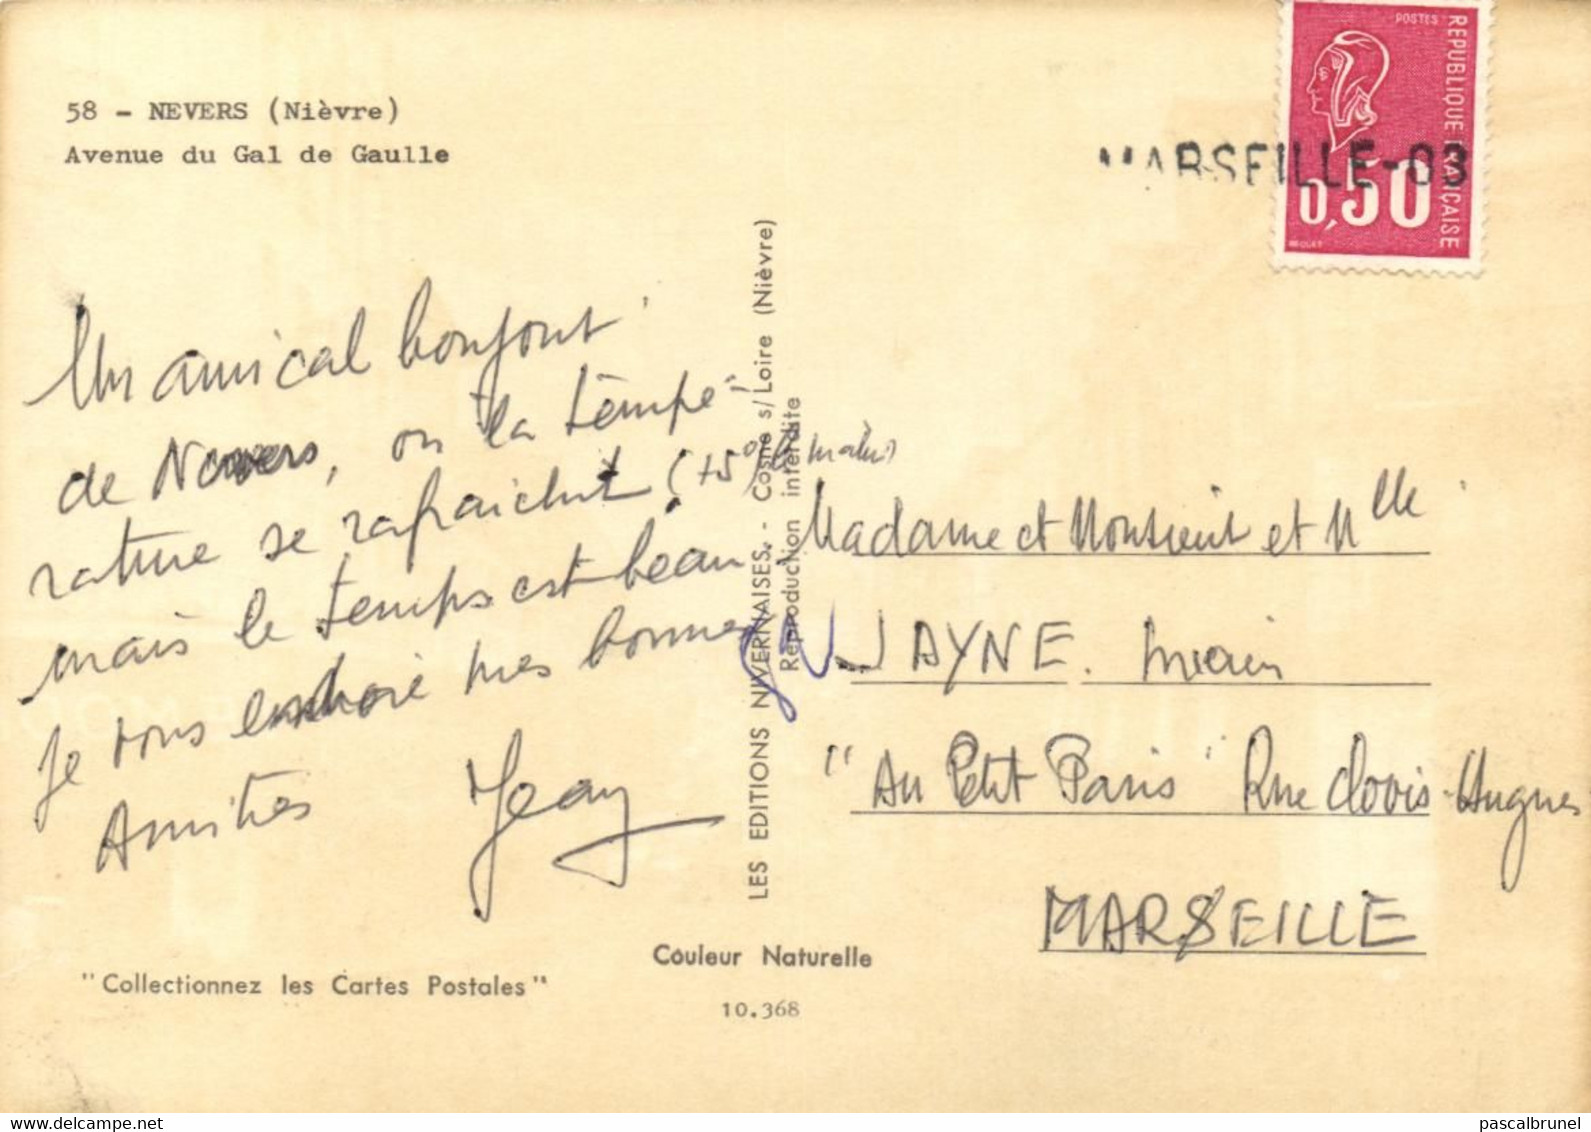 58 - NEVERS (Nièvre)
Avenue du Gal de Gaulle
POSTES
REPUBLIQUE FRANÇAISE
0,50
BEQUET
MARSEILLE-03
Un amical bonjour
de Nevers, où la tempé-
rature se rafraichit (+5° le matin)
mais le temps est beau.
Je vous envoie mes bonnes
Amitiés Jean
LES EDITIONS NIVERNAISES. - Cosne s/Loire (Nièvre)
Reproduction interdite
Madame et Monsieur et Mlle
JAYNE.
"Au Petit Paris" Rue Clovis-Hugues
MARSEILLE
Couleur Naturelle
"Collectionnez les Cartes Postales"
10.368
pascalbrunel